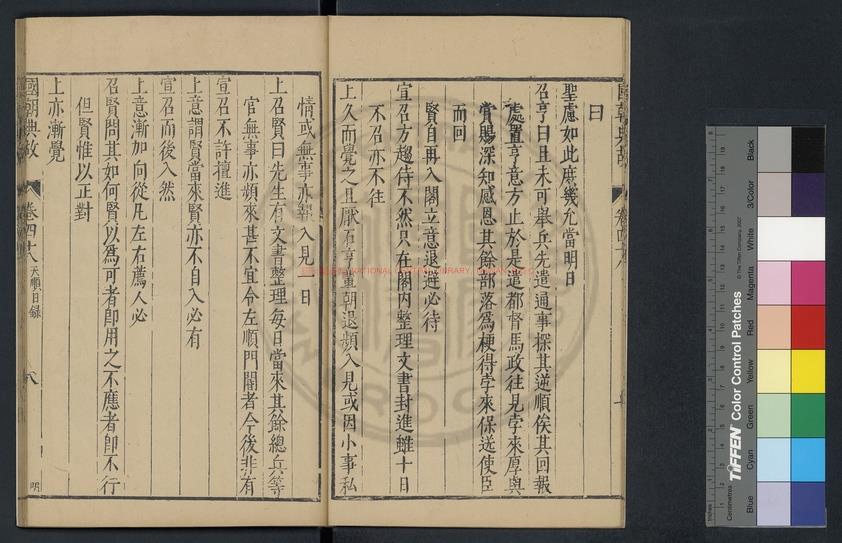 曰
聖慮如此庶幾允當明日
召亨曰且未可舉兵先遣通事探其逆順俟其回報
處置亨意方止於是遣都督馬政往見孛來厚與
賞賜深知感恩其餘部落為梗得孛來保送使臣
而回
賢自再入閣立意退避必待
宣召方趨侍不然只在閣內整理文書封進雖十日
不召亦不往
上久而覺之且厭石亨輩朝退頻入見或因小事私
情或無事亦報入見一日
上召賢曰先生有文書整理每日當來其餘總兵等
官無事亦頻來甚不宜令左順門閽者今後非有
宣召不許擅進
上意謂賢當來賢亦不自入必有
宣召而後入然
上意漸加向從凡左右薦人必
召賢問其如何賢以為可者即用之不應者即不行
但賢惟以正對
上亦漸覺
國朝典故
卷四十八
天順日錄
八
明
國朝典故
NATIONAL CENTRAL LIBRARY
TIFFEN Color Control Patches
© The Tiffen Company, 2007
Centimetres
Inches
Blue
Cyan
Green
Yellow
Red
Magenta
White
3/Color
Black